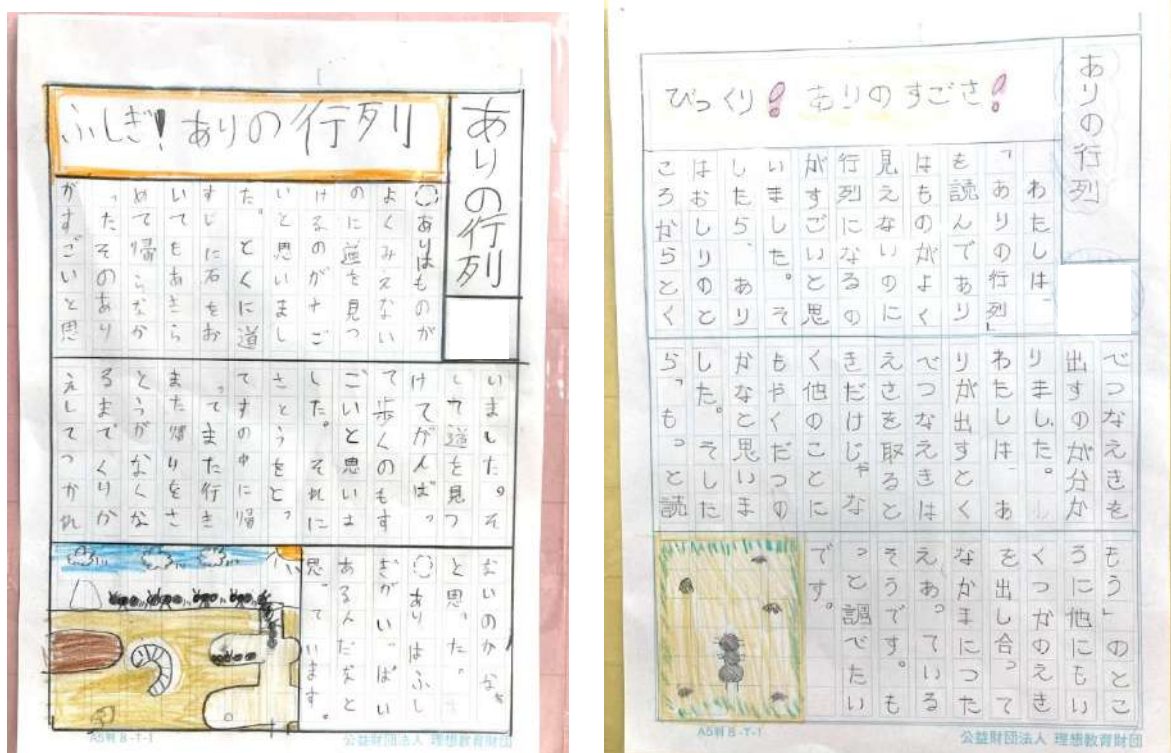 ありの行列
ふしぎ！ありの行列
ありはものが
よくみえない
のに道を見つ
けるのがすご
いと思いまし
た。とくに道
すじに石をお
いてもあきら
めて帰らなか
ったそのあり
がすごいと思
いました。そ
して道を見つ
けてがんばっ
て歩くのもす
ごいと思いま
した。それに
さとうをとっ
てすの中に帰
ってまた行き
また帰りをさ
とうがなくな
るまでくりか
えしてつかれ
ないのかなぁ
と思った。
ありはふし
ぎがいっぱい
あるんだなと
思っています。
A5判 B-T-1
公益財団法人 理想教育財団
ありの行列
びっくり！ありのすごさ！
わたしは、
「ありの行列」
を読んであり
はものがよく
見えないのに
行列になるの
がすごいと思
いました。そ
したら、あり
はおしりのと
ころからとく
べつなえきを
出すのが分か
りました。
わたしは、あ
りが出すとく
べつなえきは
えさを取ると
きだけじゃな
く他のことに
もやくだつの
かなと思いま
した。そした
ら「もっと読
もう」のとこ
ろに他にもい
くつかのえき
を出し合って
なかまにつた
えあっている
そうです。も
っと調べたい
です。
A5判 B-T-1
公益財団法人 理想教育財団